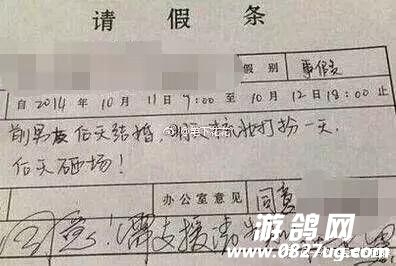 请 假 条
假 别 事假
自 2014 年 10 月 11 日 9:00 至 10 月 12 日 18:00 止
前男友后天结婚,明天梳妆打扮一天,
后天砸场!
办公室意见 同意
同意!需支援请
游鸽网
www.0827ug.com